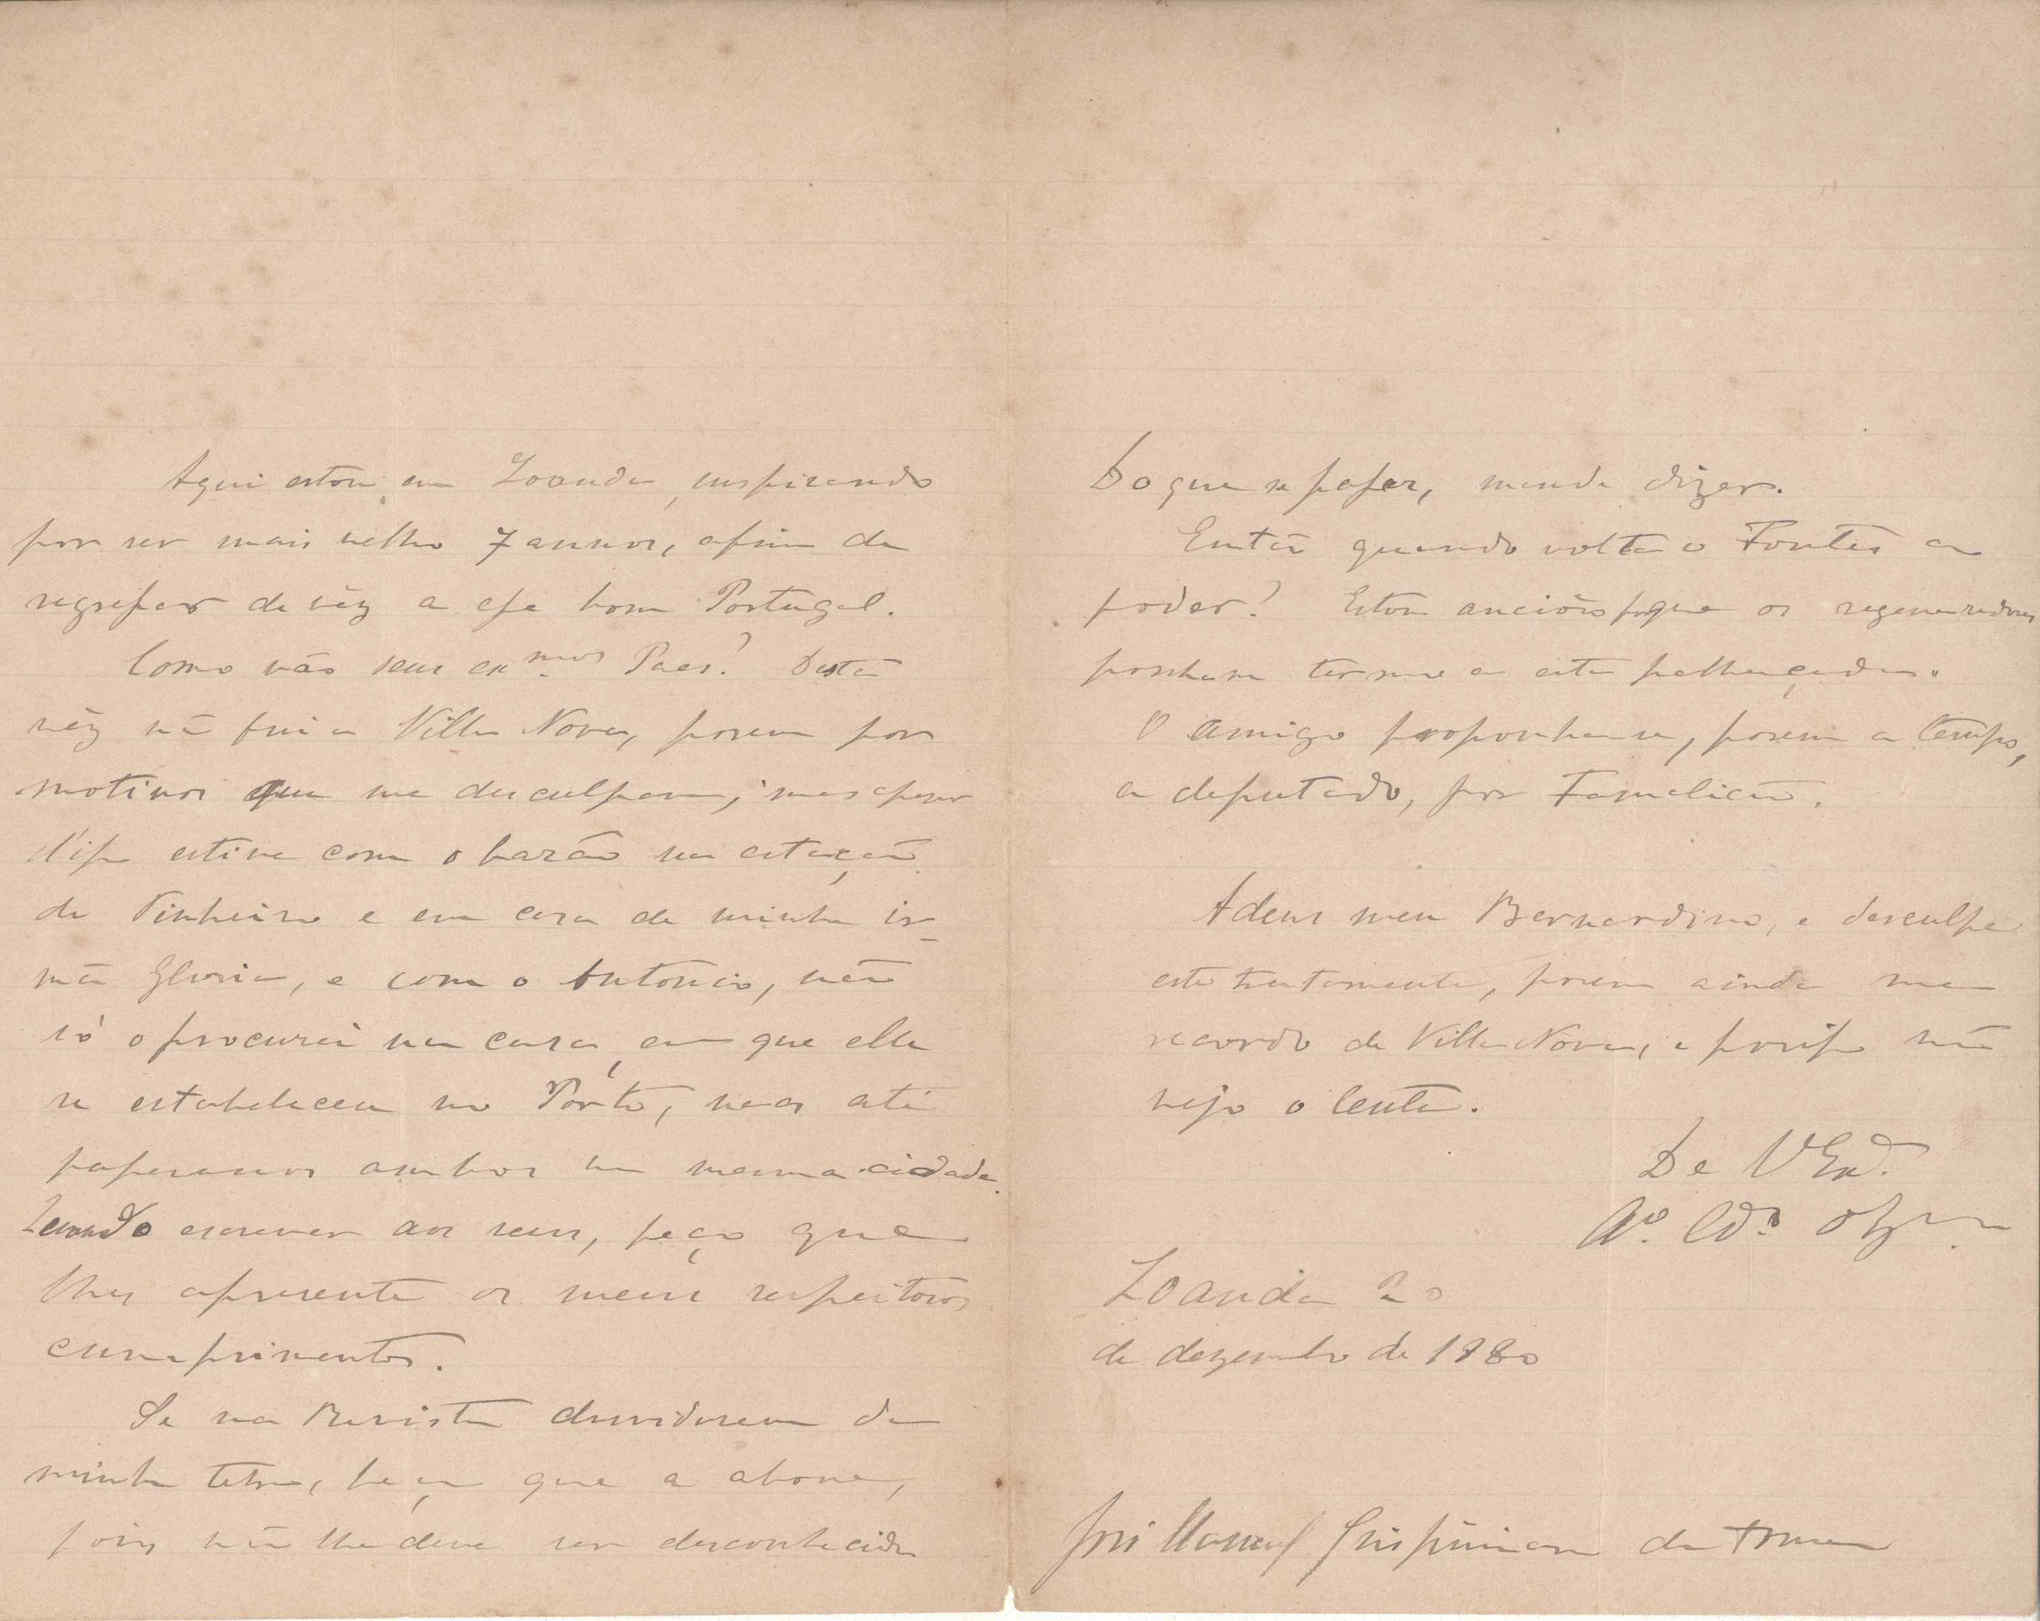 Aqui estou em Loanda, suspirando
por ser mais velho 7 annos, afim de
regressar de vêz a esse bom Portugal.
Como vão seus ex.mos Paes? Desta
vêz nã fui a Villa Nova, porem por
motivos que me desculpam; mas apesar
d'isso estive com o barão na estação
de Pinheiro e em casa de minha ir-
mã Gloria, e com o Antonio, não
só o procurei na casa, em que elle
se estabeleceu no Porto, mas até
passeamos ambos na mesma cidade.
Quando escrever aos seus, peço que
lhes apresente os meus respeitosos
cumprimentos.
Se na Revista duvidarem da
minha letra, peço que a abone,
pois nã lhe deve ser desconhecida
Do que se passar, mande dizer.
Entã quando volta o Fontes ao
poder? Estou ancioso porque os regeneradores
ponham termo a esta palhaçada.
O amigo proponha-se, porem a tempo,
a deputado, por Famalicão.
Adeus meu Bernardino, e desculpe
este tratamento, porem ainda me
recordo de Villa Nova, e por isso nã
vejo o lente.
De V Ex.ª
Am.º Cr.º Obg.
Loanda 20
de dezembro de 1880
José Manoel Crispiniano da